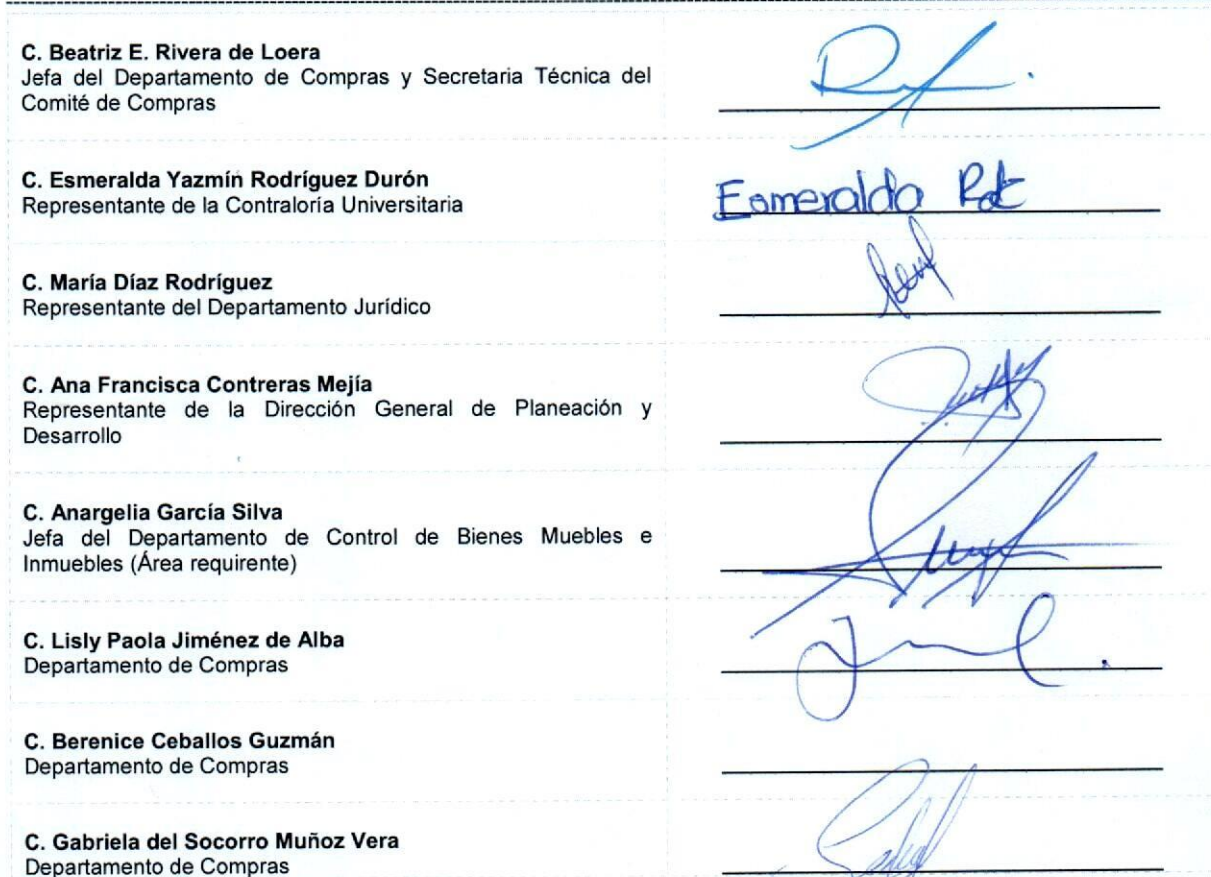 C. Beatriz E. Rivera de Loera
Jefa del Departamento de Compras y Secretaria Técnica del
Comité de Compras
C. Esmeralda Yazmín Rodríguez Durón
Representante de la Contraloría Universitaria
Esmeralda
C. María Díaz Rodríguez
Representante del Departamento Jurídico
C. Ana Francisca Contreras Mejía
Representante de la Dirección General de Planeación y
Desarrollo
C. Anargelia García Silva
Jefa del Departamento de Control de Bienes Muebles e
Inmuebles (Área requirente)
C. Lisly Paola Jiménez de Alba
Departamento de Compras
C. Berenice Ceballos Guzmán
Departamento de Compras
C. Gabriela del Socorro Muñoz Vera
Departamento de Compras